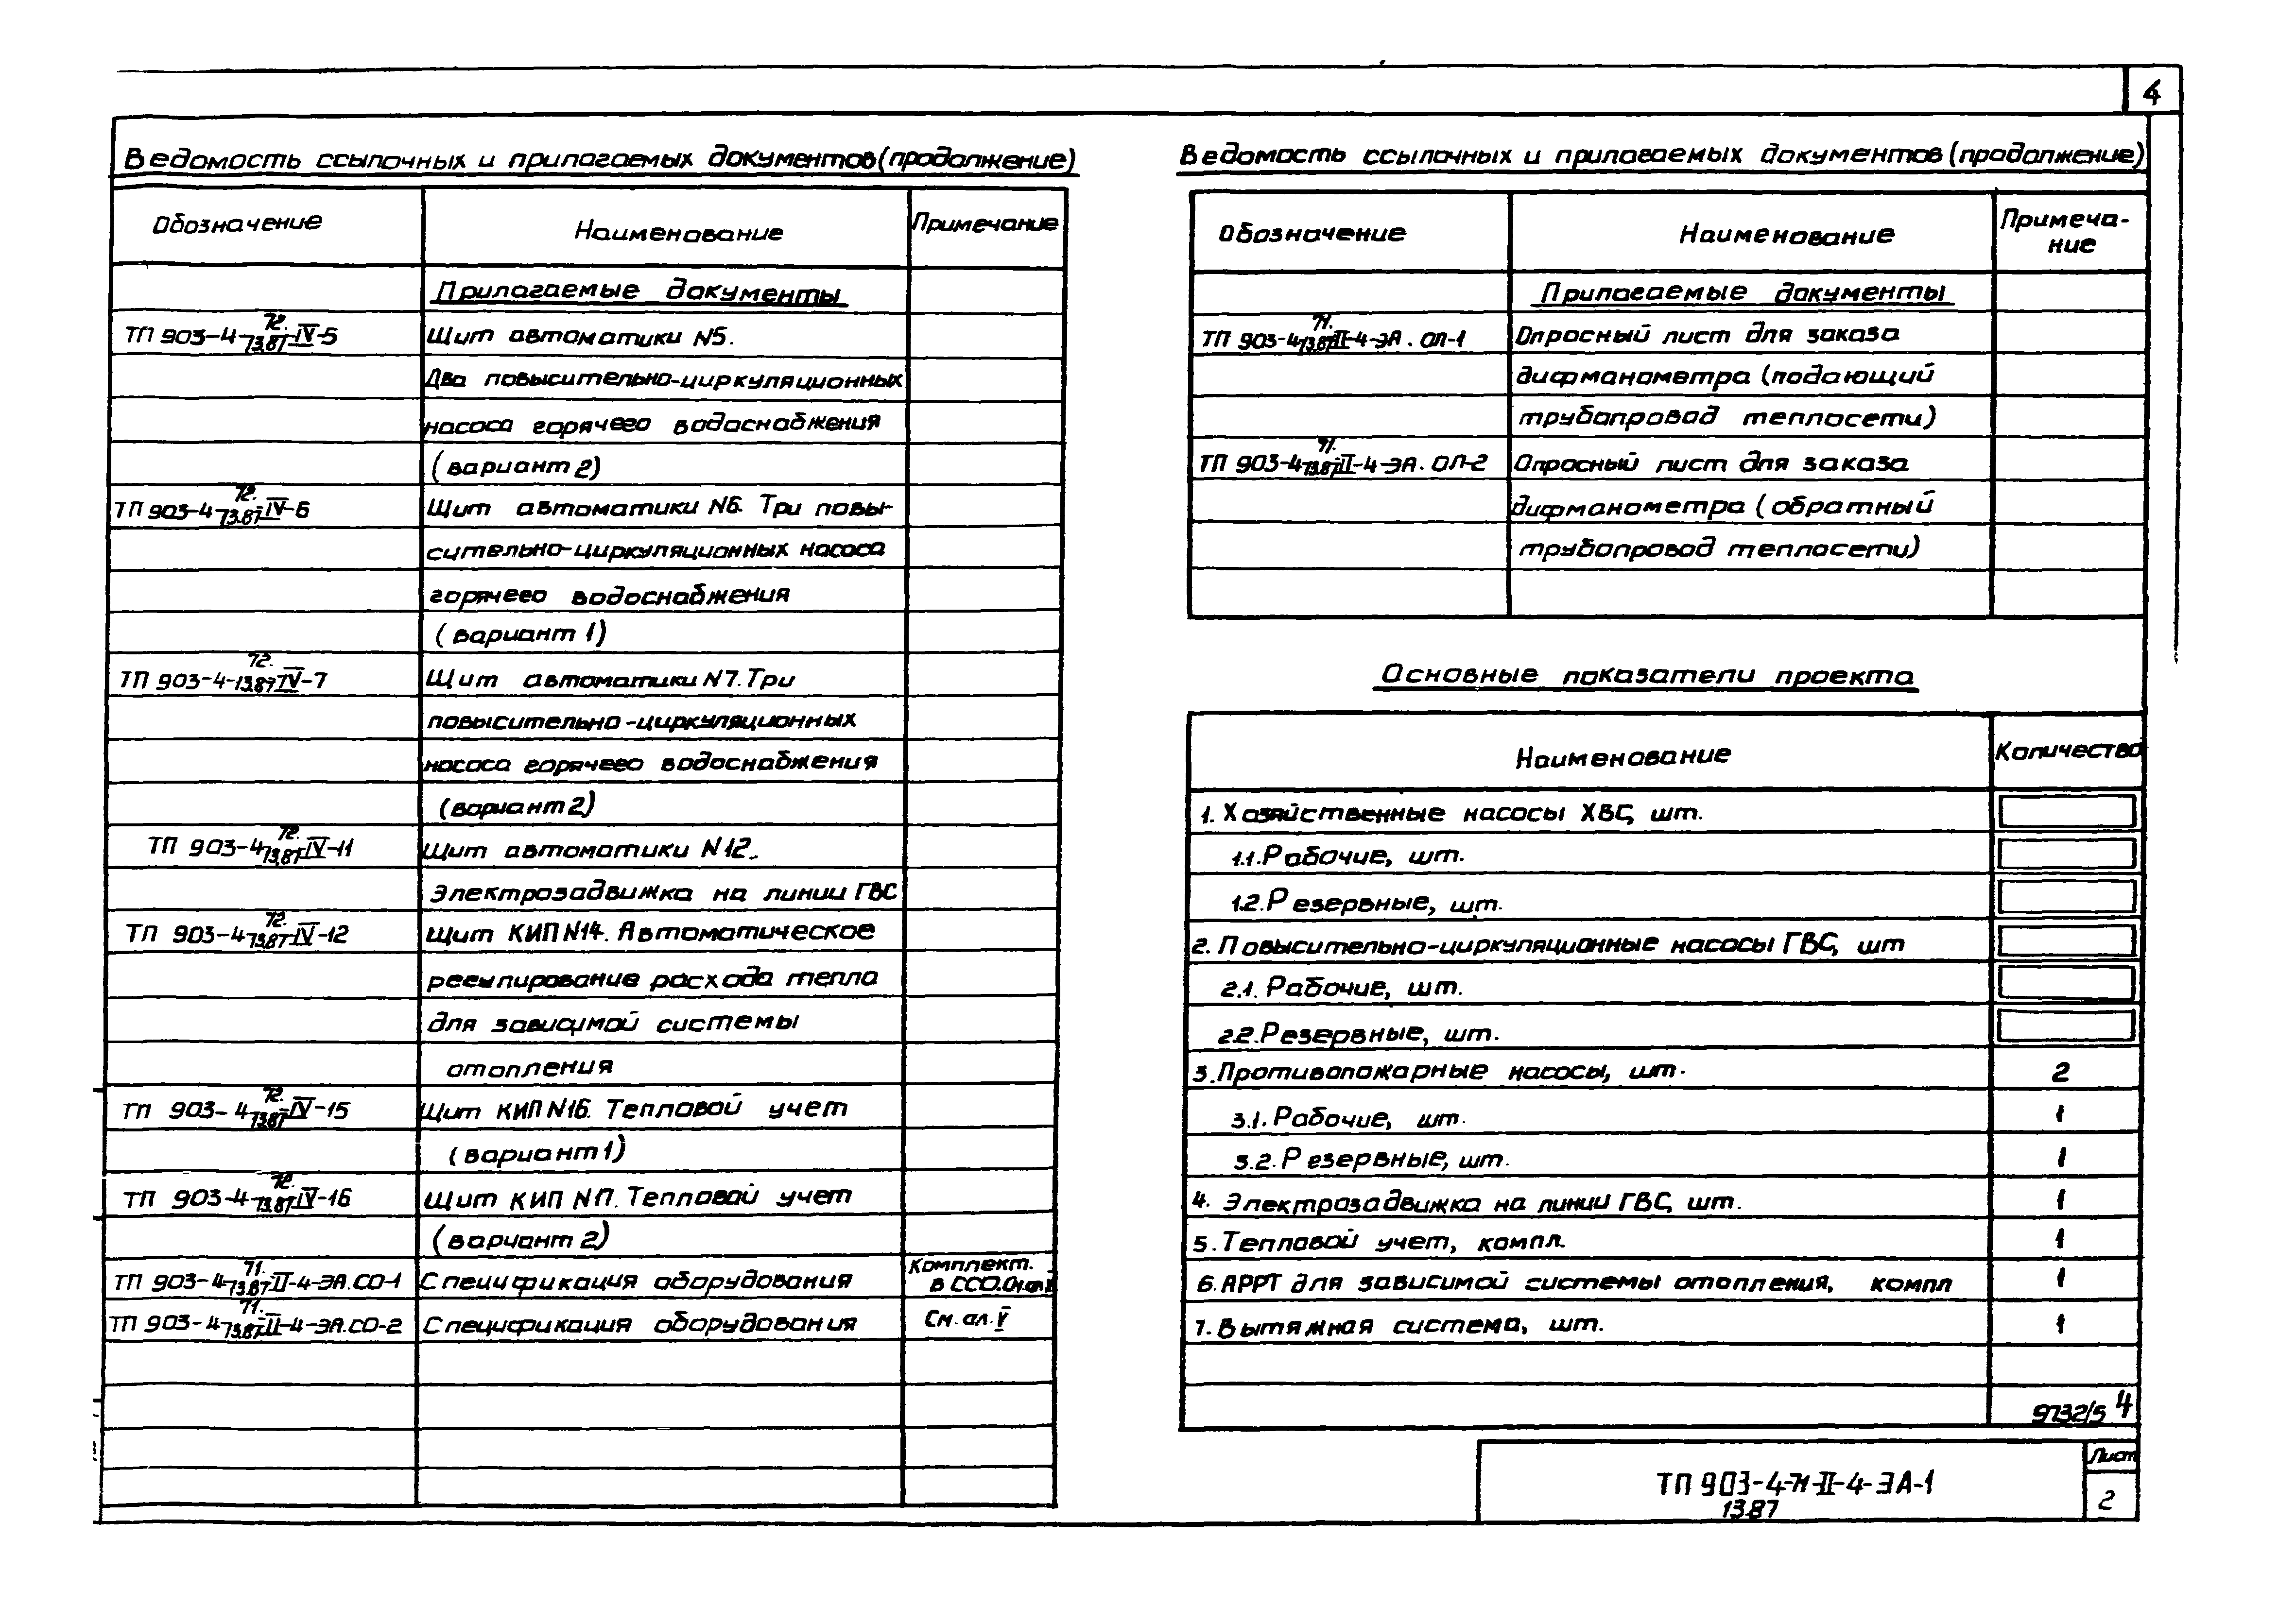 4
Ведомость ссылочных и прилагаемых документов (продолжение)
Обозначение Наименование Примечание
Прилагаемые документы
ТП 903-4-72.13.87-IV-5 Щит автоматики N5.
Два повысительно-циркуляционных
насоса горячего водоснабжения
(вариант 2)
ТП 903-4-72.13.87-IV-6 Щит автоматики N6. Три повы-
сительно-циркуляционных насоса
горячего водоснабжения
(вариант 1)
ТП 903-4-72.13.87-IV-7 Щит автоматики N7. Три
повысительно-циркуляционных
насоса горячего водоснабжения
(вариант 2)
ТП 903-4-72.13.87-IV-11 Щит автоматики N12.
Электрозадвижка на линии ГВС
ТП 903-4-72.13.87-IV-12 Щит КИП N14. Автоматическое
регулирование расхода тепла
для зависимой системы
отопления
ТП 903-4-72.13.87-IV-15 Щит КИП N16. Тепловой учет
(вариант 1)
ТП 903-4-72.13.87-IV-16 Щит КИП N17. Тепловой учет
(вариант 2)
ТП 903-4-71.13.87-II-4-ЭА.СО-1 Спецификация оборудования Комплект.
в ССО.
ТП 903-4-71.13.87-II-4-ЭА.СО-2 Спецификация оборудования См. ал. V
Ведомость ссылочных и прилагаемых документов (продолжение)
Обозначение Наименование Примеча-
ние
Прилагаемые документы
ТП 903-4-71.13.87-II-4-ЭА.ОЛ-1 Опросный лист для заказа
дифманометра (подающий
трубопровод теплосети)
ТП 903-4-71.13.87-II-4-ЭА.ОЛ-2 Опросный лист для заказа
дифманометра (обратный
трубопровод теплосети)
Основные показатели проекта
Наименование Количество
1. Хозяйственные насосы ХВС, шт.
1.1. Рабочие, шт.
1.2. Резервные, шт.
2. Повысительно-циркуляционные насосы ГВС, шт
2.1. Рабочие, шт.
2.2. Резервные, шт.
3. Противопожарные насосы, шт. 2
3.1. Рабочие, шт. 1
3.2. Резервные, шт. 1
4. Электрозадвижка на линии ГВС, шт. 1
5. Тепловой учет, компл. 1
6. АРРТ для зависимой системы отопления, компл 1
7. Вытяжная система, шт. 1
9732/5 4
ТП 903-4-71-II-4-ЭА-1
13.87
Лист
2